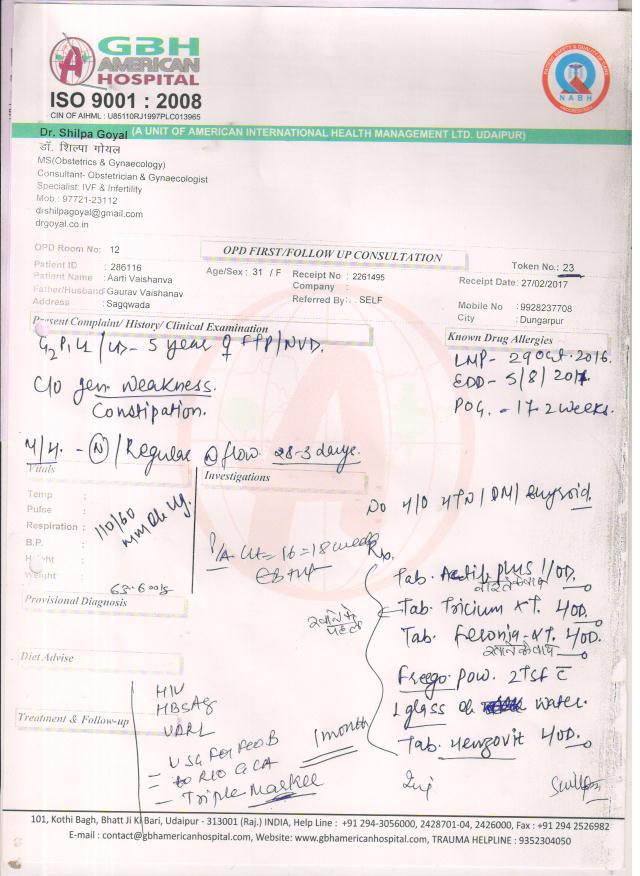 GBH
AMERICAN
HOSPITAL
ISO 9001 : 2008
CIN OF AIHML : U85110RJ1997PLC013965
NABH
(A UNIT OF AMERICAN INTERNATIONAL HEALTH MANAGEMENT LTD. UDAIPUR)
Dr. Shilpa Goyal
डॉ. शिल्पा गोयल
MS(Obstetrics & Gynaecology)
Consultant- Obstetrician & Gynaecologist
Specialist: IVF & Infertility
Mob.: 97721-23112
drshilpagoyal@gmail.com
drgoyal.co.in
OPD Room No: 12
OPD FIRST/FOLLOW UP CONSULTATION
Token No.: 23
Patient ID : 286116
Age/Sex : 31 / F
Receipt No : 2261495
Receipt Date: 27/02/2017
Patient Name : Aarti Vaishanva
Company :
Father/Husband : Gaurav Vaishanav
Referred By : . SELF
Mobile No : 9928237708
Address : Sagqwada
City : Dungarpur
Present Complaint/ History/ Clinical Examination
Known Drug Allergies
G2P1L1 / LD- 5 year FTP/NVD.
LMP- 29 Oct. 2016.
EDD- 5/8/2017.
POG. - 17.2 weeks.
C/O gen. weakness.
Constipation.
M/H. - N / Regular flow 28-3 days.
Vitals
Investigations
Temp :
Pulse :
Respiration :
B.P. :
Height :
Weight :
110/60
mm of Hg.
P/A Ut = 16=18 weeks
No H/O HTN / DM / thyroid.
Rx
Tab. plus 1/OD.
Tab. Tricium XT. 1/OD.
खाने से पहले
Tab. Feronia-XT. 1/OD.
खाने के बाद
Freego pow. 2TSF c̄
1 glass of water.
Tab. Henzovit 1/OD.
Provisional Diagnosis
Diet Advise
Treatment & Follow-up
HIV
HBSAg
VDRL
USG For FeoB
to R/O GCA
Triple Marker
1 month
101, Kothi Bagh, Bhatt Ji Ki Bari, Udaipur - 313001 (Raj.) INDIA, Help Line : +91 294-3056000, 2428701-04, 2426000, Fax : +91 294 2526982
E-mail : contact@gbhamericanhospital.com, Website: www.gbhamericanhospital.com, TRAUMA HELPLINE : 9352304050